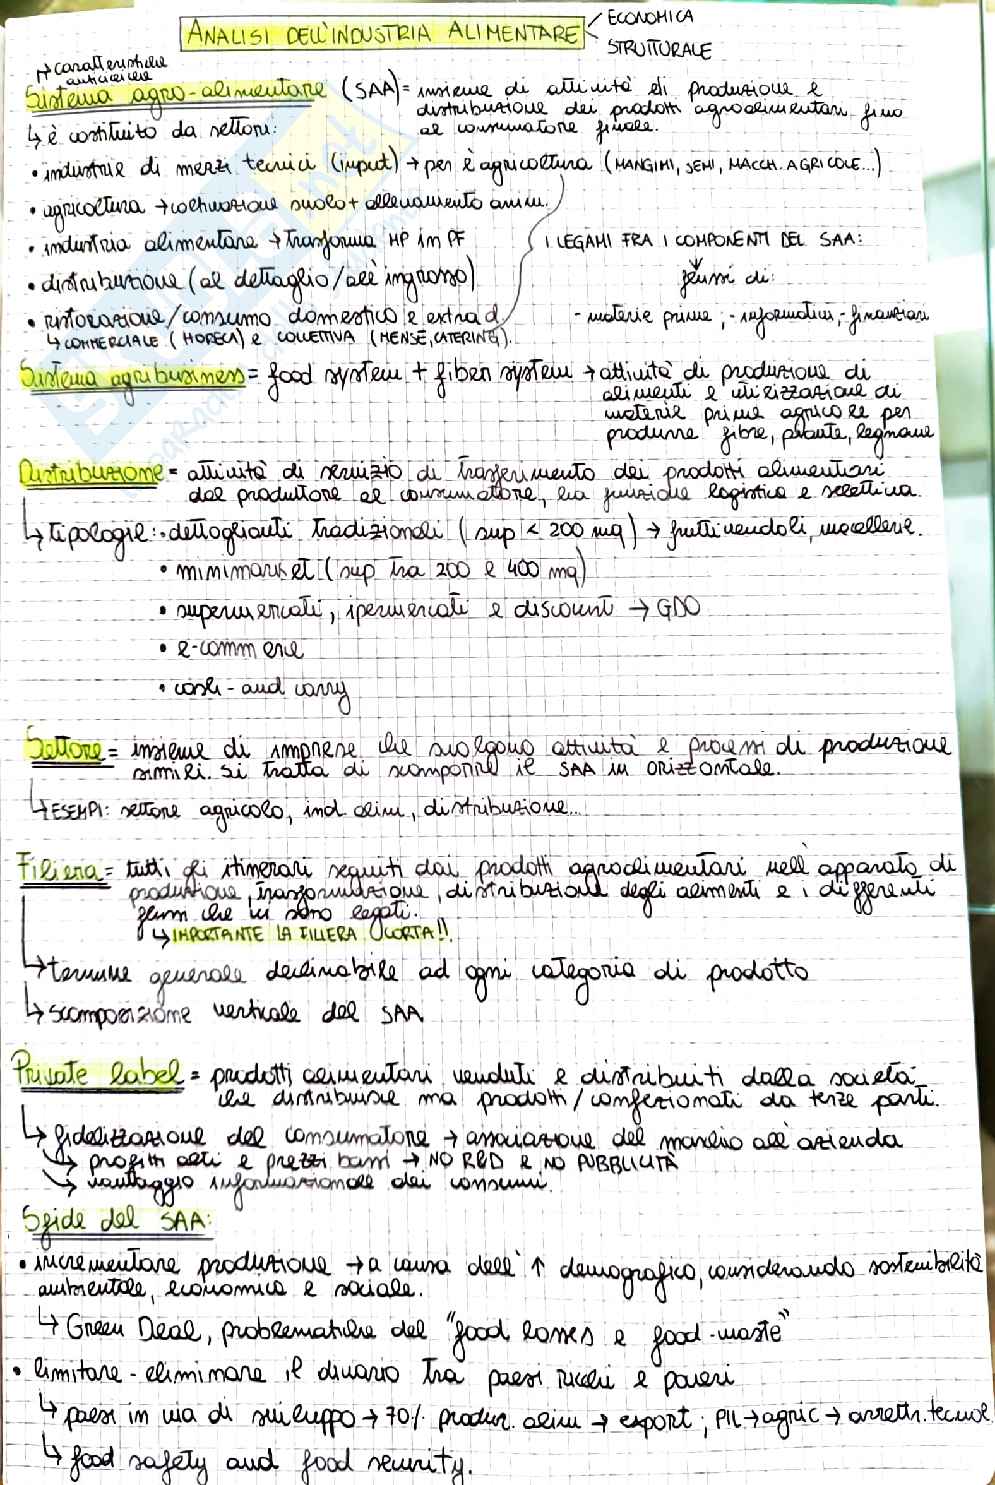 ANALISI DELL'INDUSTRIA ALIMENTARE
ECONOMICA
STRUTTURALE
caratteristiche
Sistema agro-alimentare (SAA) = insieme di attività di produzione e
distribuzione dei prodotti agroalimentari fino
al consumatore finale.
↳ è costituito da settori:
• industrie di mezzi tecnici (input) → per l'agricoltura (MANGIMI, SEMI, MACCH. AGRICOLE...)
• agricoltura → coltivazione suolo + allevamento anim.
• industria alimentare → trasforma MP in PF
I LEGAMI FRA I COMPONENTI DEL SAA:
• distribuzione (al dettaglio/all'ingrosso)
flussi di:
• ristorazione/consumo domestico e extra d
- materie prime; - informativi; - finanziari
↳ COMMERCIALE (HORECA) E COLLETTIVA (MENSE, CATERING).
Sistema agribusiness = food system + fiber system → attività di produzione di
alimenti e utilizzazione di
materie prime agricole per
produrre fibre, piante, legname
Distribuzione = attività di servizio di trasferimento dei prodotti alimentari
dal produttore al consumatore, ha funzione logistica e selettiva.
↳ tipologie: • dettaglianti tradizionali (sup < 200 mq) → fruttivendoli, macellerie.
• minimarket (sup tra 200 e 400 mq)
• supermercati, ipermercati e discount → GDO
• e-commerce
• cash-and carry
Settore = insieme di imprese che svolgono attività e processi di produzione
simili. Si tratta di scomporre il SAA in orizzontale.
↳ ESEMPI: settore agricolo, ind alim, distribuzione...
Filiera = tutti gli itinerari seguiti dai prodotti agroalimentari nell'apparato di
produzione, trasformazione, distribuzione degli alimenti e i differenti
flussi che vi sono legati.
↳ IMPORTANTE LA FILIERA CORTA!!
↳ termine generale declinabile ad ogni categoria di prodotto
↳ scomposizione verticale del SAA
Private label = prodotti alimentari venduti e distribuiti dalla società
che distribuisce ma prodotti/confezionati da terze parti.
↳ fidelizzazione del consumatore → associazione del marchio all'azienda
↳ profitti alti e prezzi bassi → NO R&D E NO PUBBLICITÀ
↳ vantaggio informazionale dei consumi.
Sfide del SAA:
• incrementare produzione → a causa dell'↑ demografico, considerando sostenibilità
ambientale, economica e sociale.
↳ Green Deal, problematiche del "food losses e food-waste"
• limitare - eliminare il divario tra paesi ricchi e poveri
↳ paesi in via di sviluppo → 70% produz. alim → export; PIL → agric → arretr. tecnol.
↳ food safety and food security.